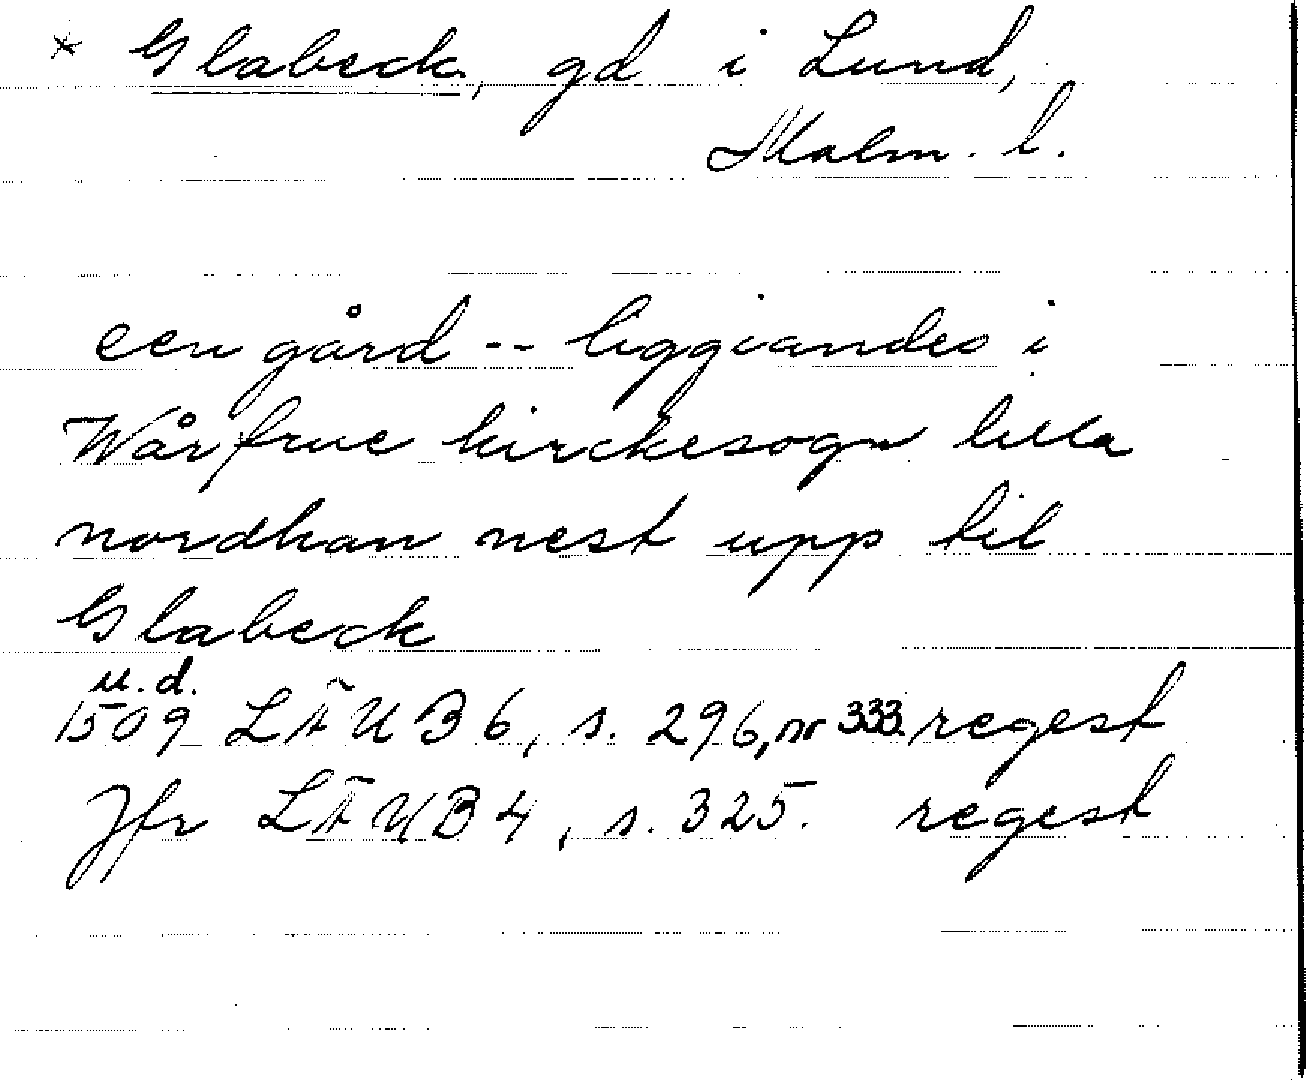 * Glabeck, gd i Lund,
Malm. l.
een gård -- liggiandes i
Wårfrue kirckesogn lilla
nordhan nest upp til
Glabeck
u.d.
1509 LÄUB 6, s. 296, nr 333. regest
Jfr LÄUB 4, s. 325. regest